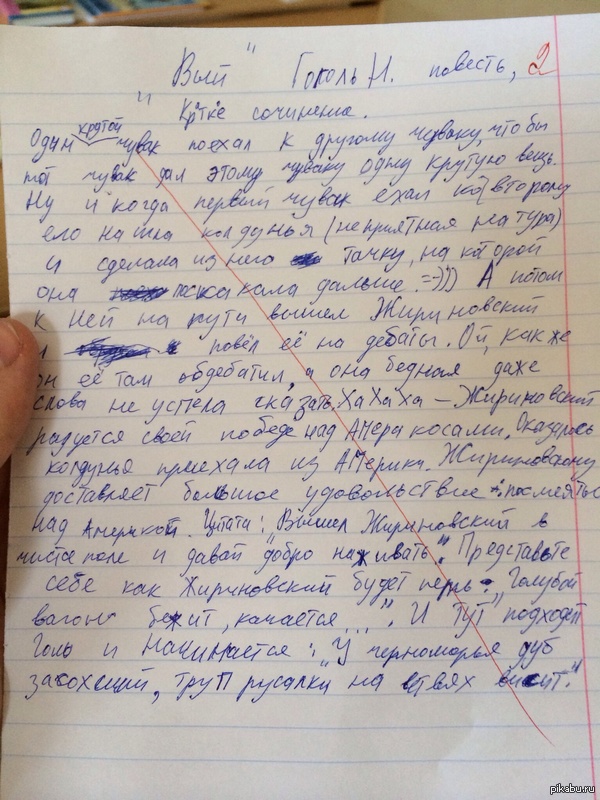 "Вый" Гоголь Н. повесть, 2
Крtке сочинение.
крутой
Один чувак поехал к другому чуваку, что бы
тот чувак дал этому чуваку одну крутую вещь.
Ну и когда первый чувак ехал ко второму
его нашла колдунья (неприятная натура)
и сделала из него тачку, на которой
она поскакала дальше. =))) А потом
к ней на пути вышел Жириновский
и повёл её на дебаты. Ой, как же
он её там обдебатил, а она бедная даже
слова не успела сказать. ХаХаха - Жириновский
радуется своей победе над АМерикосами. Оказалось
колдунья приехала из АМерики. Жириновскому
доставляет большое удовольствие посмеяться
над Америкой. Цитата: "Вышел Жириновский в
чисто поле и давай "добро наживать". Представьте
себе как Жириновский будет петь: "Голубой
вагон бежит, качается...". И тут подходит
Голь и начинается: "У черноморья дуб
засохший, труп русалки на ветвях висит."
pikabu.ru